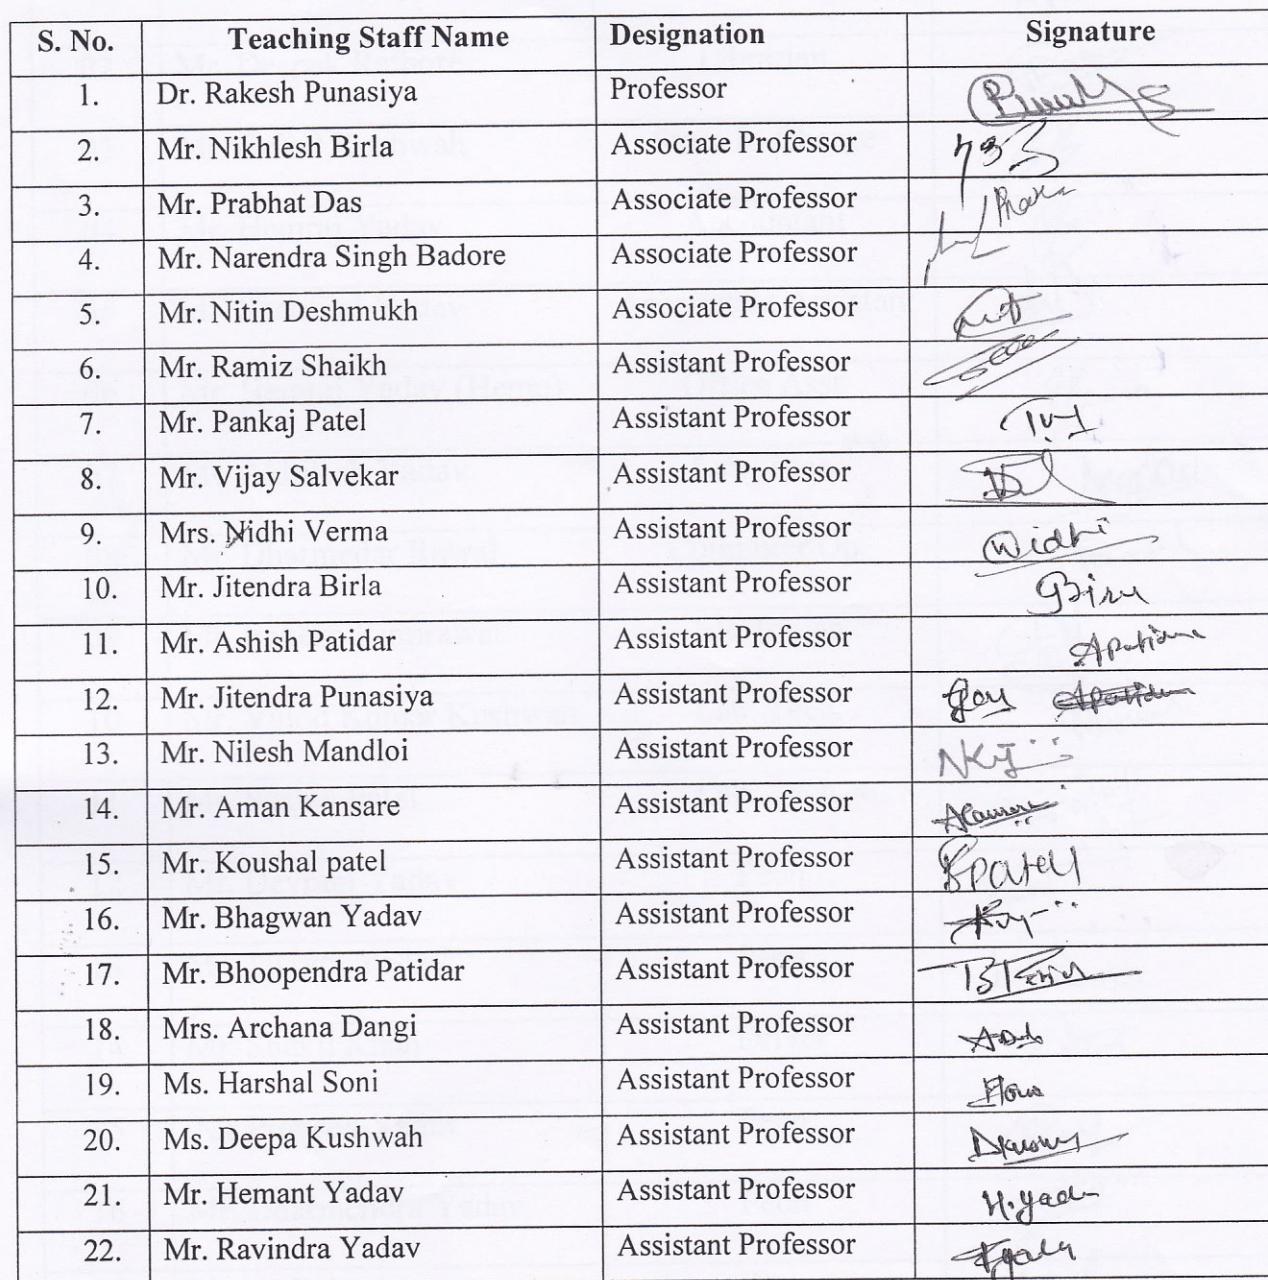 S. No. Teaching Staff Name Designation Signature
1. Dr. Rakesh Punasiya Professor
2. Mr. Nikhlesh Birla Associate Professor
3. Mr. Prabhat Das Associate Professor
4. Mr. Narendra Singh Badore Associate Professor
5. Mr. Nitin Deshmukh Associate Professor
6. Mr. Ramiz Shaikh Assistant Professor
7. Mr. Pankaj Patel Assistant Professor
8. Mr. Vijay Salvekar Assistant Professor
9. Mrs. Nidhi Verma Assistant Professor Nidhi
10. Mr. Jitendra Birla Assistant Professor
11. Mr. Ashish Patidar Assistant Professor
12. Mr. Jitendra Punasiya Assistant Professor
13. Mr. Nilesh Mandloi Assistant Professor
14. Mr. Aman Kansare Assistant Professor
15. Mr. Koushal patel Assistant Professor
16. Mr. Bhagwan Yadav Assistant Professor
17. Mr. Bhoopendra Patidar Assistant Professor
18. Mrs. Archana Dangi Assistant Professor
19. Ms. Harshal Soni Assistant Professor
20. Ms. Deepa Kushwah Assistant Professor
21. Mr. Hemant Yadav Assistant Professor
22. Mr. Ravindra Yadav Assistant Professor